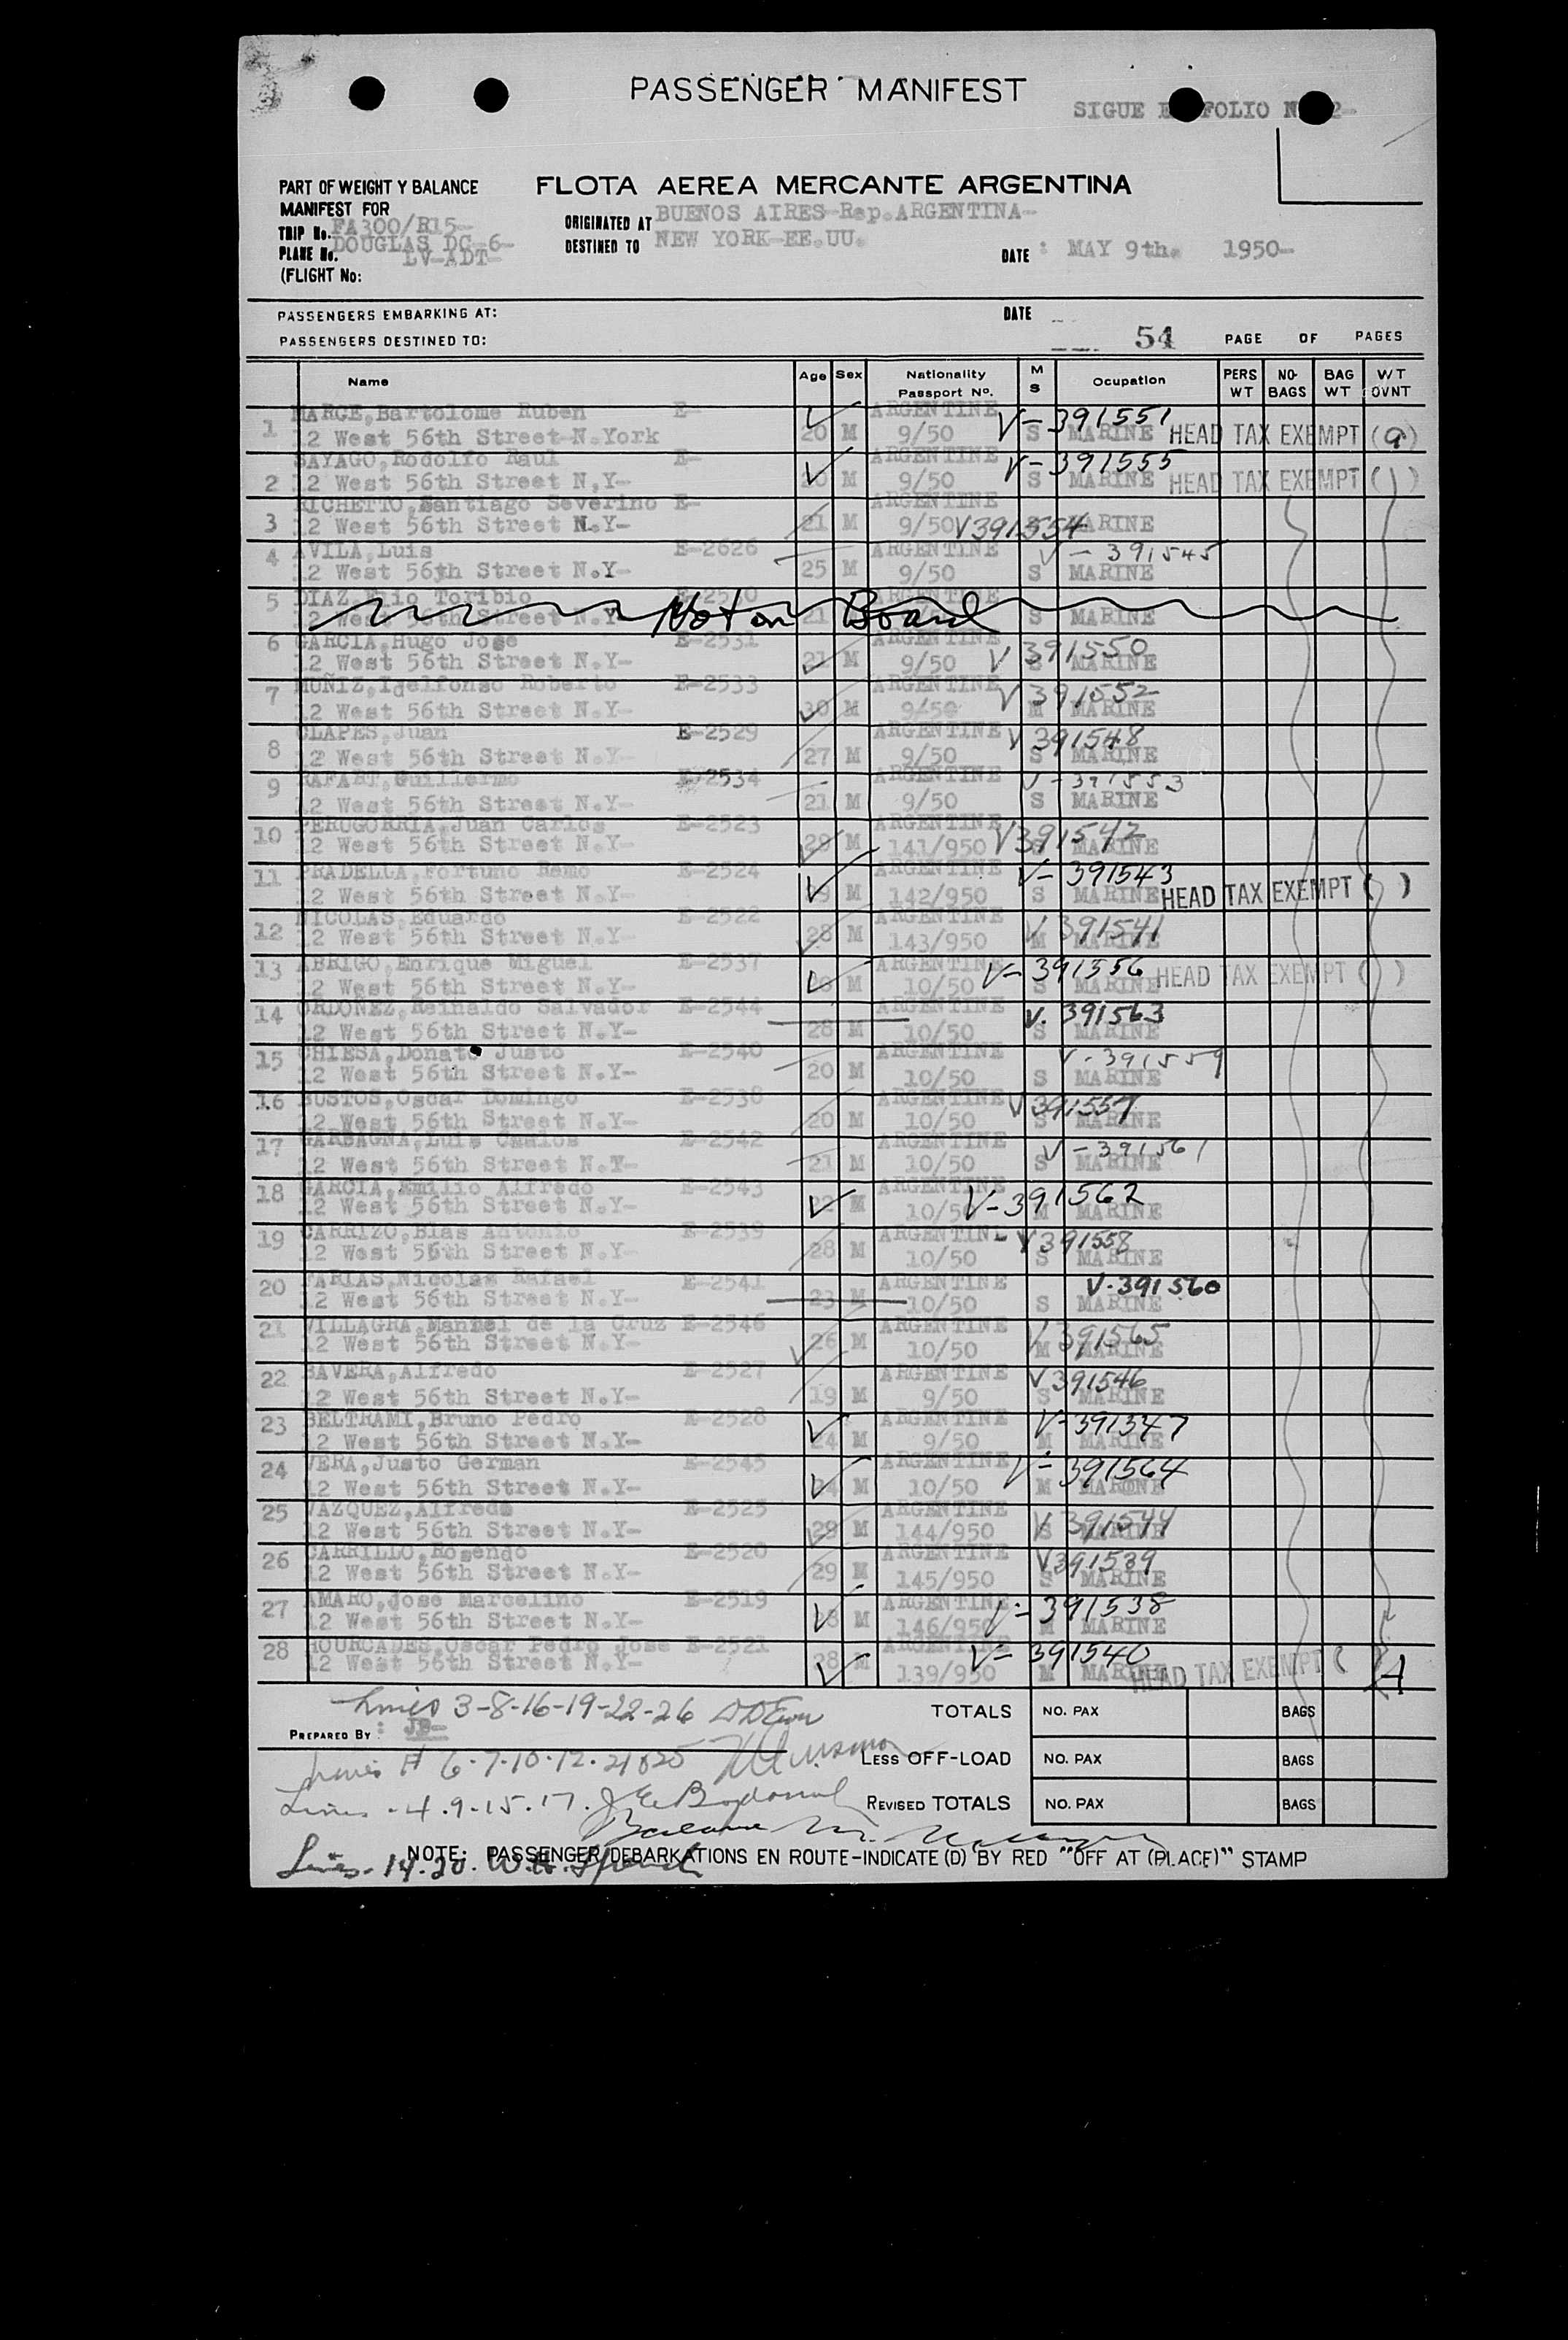 PASSENGER MANIFEST
SIGUE FOLIO
PART OF WEIGHT Y BALANCE
FLOTA AEREA MERCANTE ARGENTINA
MANIFEST FOR
TRIP No. FA300/R15-
ORIGINATED AT BUENOS AIRES-Rep.ARGENTINA-
PLANE No. DOUGLAS DC-6-
LV-ADT-
DESTINED TO NEW YORK-EE.UU.
DATE : MAY 9th. 1950-
(FLIGHT No:
PASSENGERS EMBARKING AT: DATE
PASSENGERS DESTINED TO: 54 PAGE OF PAGES
Name Age Sex Nationality Passport No. M S Ocupation PERS WT NO- BAGS BAG WT WT OVNT
1 MARCE,Bartolome Ruben E- ARGENTINE V-391551
12 West 56th Street N.York 20 M 9/50 S MARINE HEAD TAX EXEMPT (a)
2 SAYAGO,Rodolfo Raul E- ARGENTINE V-391555
12 West 56th Street N,Y- 20 M 9/50 S MARINE HEAD TAX EXEMPT ( )
3 RICHETTO,Santiago Severino E- ARGENTINE
12 West 56th Street N.Y- 21 M 9/50 V391554 MARINE
4 AVILA,Luis E-2626 ARGENTINE V-391545
12 West 56th Street N.Y- 25 M 9/50 S MARINE
5 DIAZ,Elio Toribio ARGENTINE
12 West 56th Street N.Y Not on Board 21 S MARINE
6 GARCIA,Hugo Jose E-2531 ARGENTINE V 391550
12 West 56th Street N.Y- 21 M 9/50 S MARINE
7 MUÑIZ,Idelfonso Roberto E-2533 ARGENTINE V 391552
12 West 56th Street N.Y- 30 M 9/50 M MARINE
8 CLAPES,Juan E-2529 ARGENTINE V 391548
12 West 56th Street N.Y- 27 M 9/50 S MARINE
9 RAFART,Guillermo E-2534 ARGENTINE V-391553
12 West 56th Street N.Y- 21 M 9/50 S MARINE
10 PERUGORRIA,Juan Carlos E-2523 ARGENTINE V391542
12 West 56th Street N.Y- 29 M 141/950 MARINE
11 PRADELLA,Fortuno Remo E-2524 ARGENTINE V-391543
12 West 56th Street N.Y- 29 M 142/950 S MARINE HEAD TAX EXEMPT ( )
12 NICOLAS,Eduardo E-2522 ARGENTINE V 391541
12 West 56th Street N.Y- 28 M 143/950 M MARINE
13 ABRIGO,Enrique Miguel E-2537 ARGENTINE V-391556
12 West 56th Street N.Y- M 10/50 S MARINE HEAD TAX EXEMPT ( )
14 ORDOÑEZ,Reinaldo Salvador E-2544 ARGENTINE V. 391563
12 West 56th Street N.Y- 28 M 10/50 S MARINE
15 CHIESA,Donato Justo E-2540 ARGENTINE V-391559
12 West 56th Street N.Y- 20 M 10/50 S MARINE
16 BUSTOS,Oscar Domingo E-2538 ARGENTINE V 391557
12 West 56th Street N.Y- 20 M 10/50 S MARINE
17 GARBAGNA,Luis Carlos E-2542 ARGENTINE V-391561
12 West 56th Street N.T- 21 M 10/50 S MARINE
18 GARCIA,Emilio Alfredo E-2543 ARGENTINE V-391562
12 West 56th Street N.Y- 22 M 10/50 M MARINE
19 CARRIZO,Blas Antonio E-2539 ARGENTINE V391558
12 West 56th Street N.Y- 28 M 10/50 S MARINE
20 FARIAS,Nicolas Rafael E-2541 ARGENTINE V-391560
12 West 56th Street N.Y- 23 M 10/50 S MARINE
21 VILLAGRA,Manuel de la Cruz E-2546 ARGENTINE V 391565
12 West 56th Street N.Y- 26 M 10/50 M MARINE
22 BAVERA,Alfredo E-2527 ARGENTINE V391546
12 West 56th Street N.Y- 19 M 9/50 S MARINE
23 BELTRAMI,Bruno Pedro E-2528 ARGENTINE V-391347
12 West 56th Street N.Y- 24 M 9/50 M MARINE
24 VERA,Justo German E-2545 ARGENTINE V-391564
12 West 56th Street N.Y- 24 M 10/50 M MARINE
25 VAZQUEZ,Alfredo E-2525 ARGENTINE V 391544
12 West 56th Street N.Y- 29 M 144/950 S MARINE
26 CARRILLO,Rosendo E-2520 ARGENTINE V391539
12 West 56th Street N.Y- 29 M 145/950 S MARINE
27 AMARO,Jose Marcelino E-2519 ARGENTINE V-391538
12 West 56th Street N.Y- 28 M 146/950 M MARINE
28 HOURCADES,Oscar Pedro Jose E-2521 ARGENTINE V-391540
12 West 56th Street N.Y- 28 M 139/950 M MARINE HEAD TAX EXEMPT (
Lines 3-8-16-19-22-26
TOTALS NO. PAX BAGS
PREPARED BY : JB-
Lines # 6-7-10-12-21
LESS OFF-LOAD NO. PAX BAGS
Lines -4.9.15.17.
REVISED TOTALS NO. PAX BAGS
Balance
NOTE: PASSENGER DEBARKATIONS EN ROUTE-INDICATE (D) BY RED "OFF AT (PLACE)" STAMP
Lines-14-20.